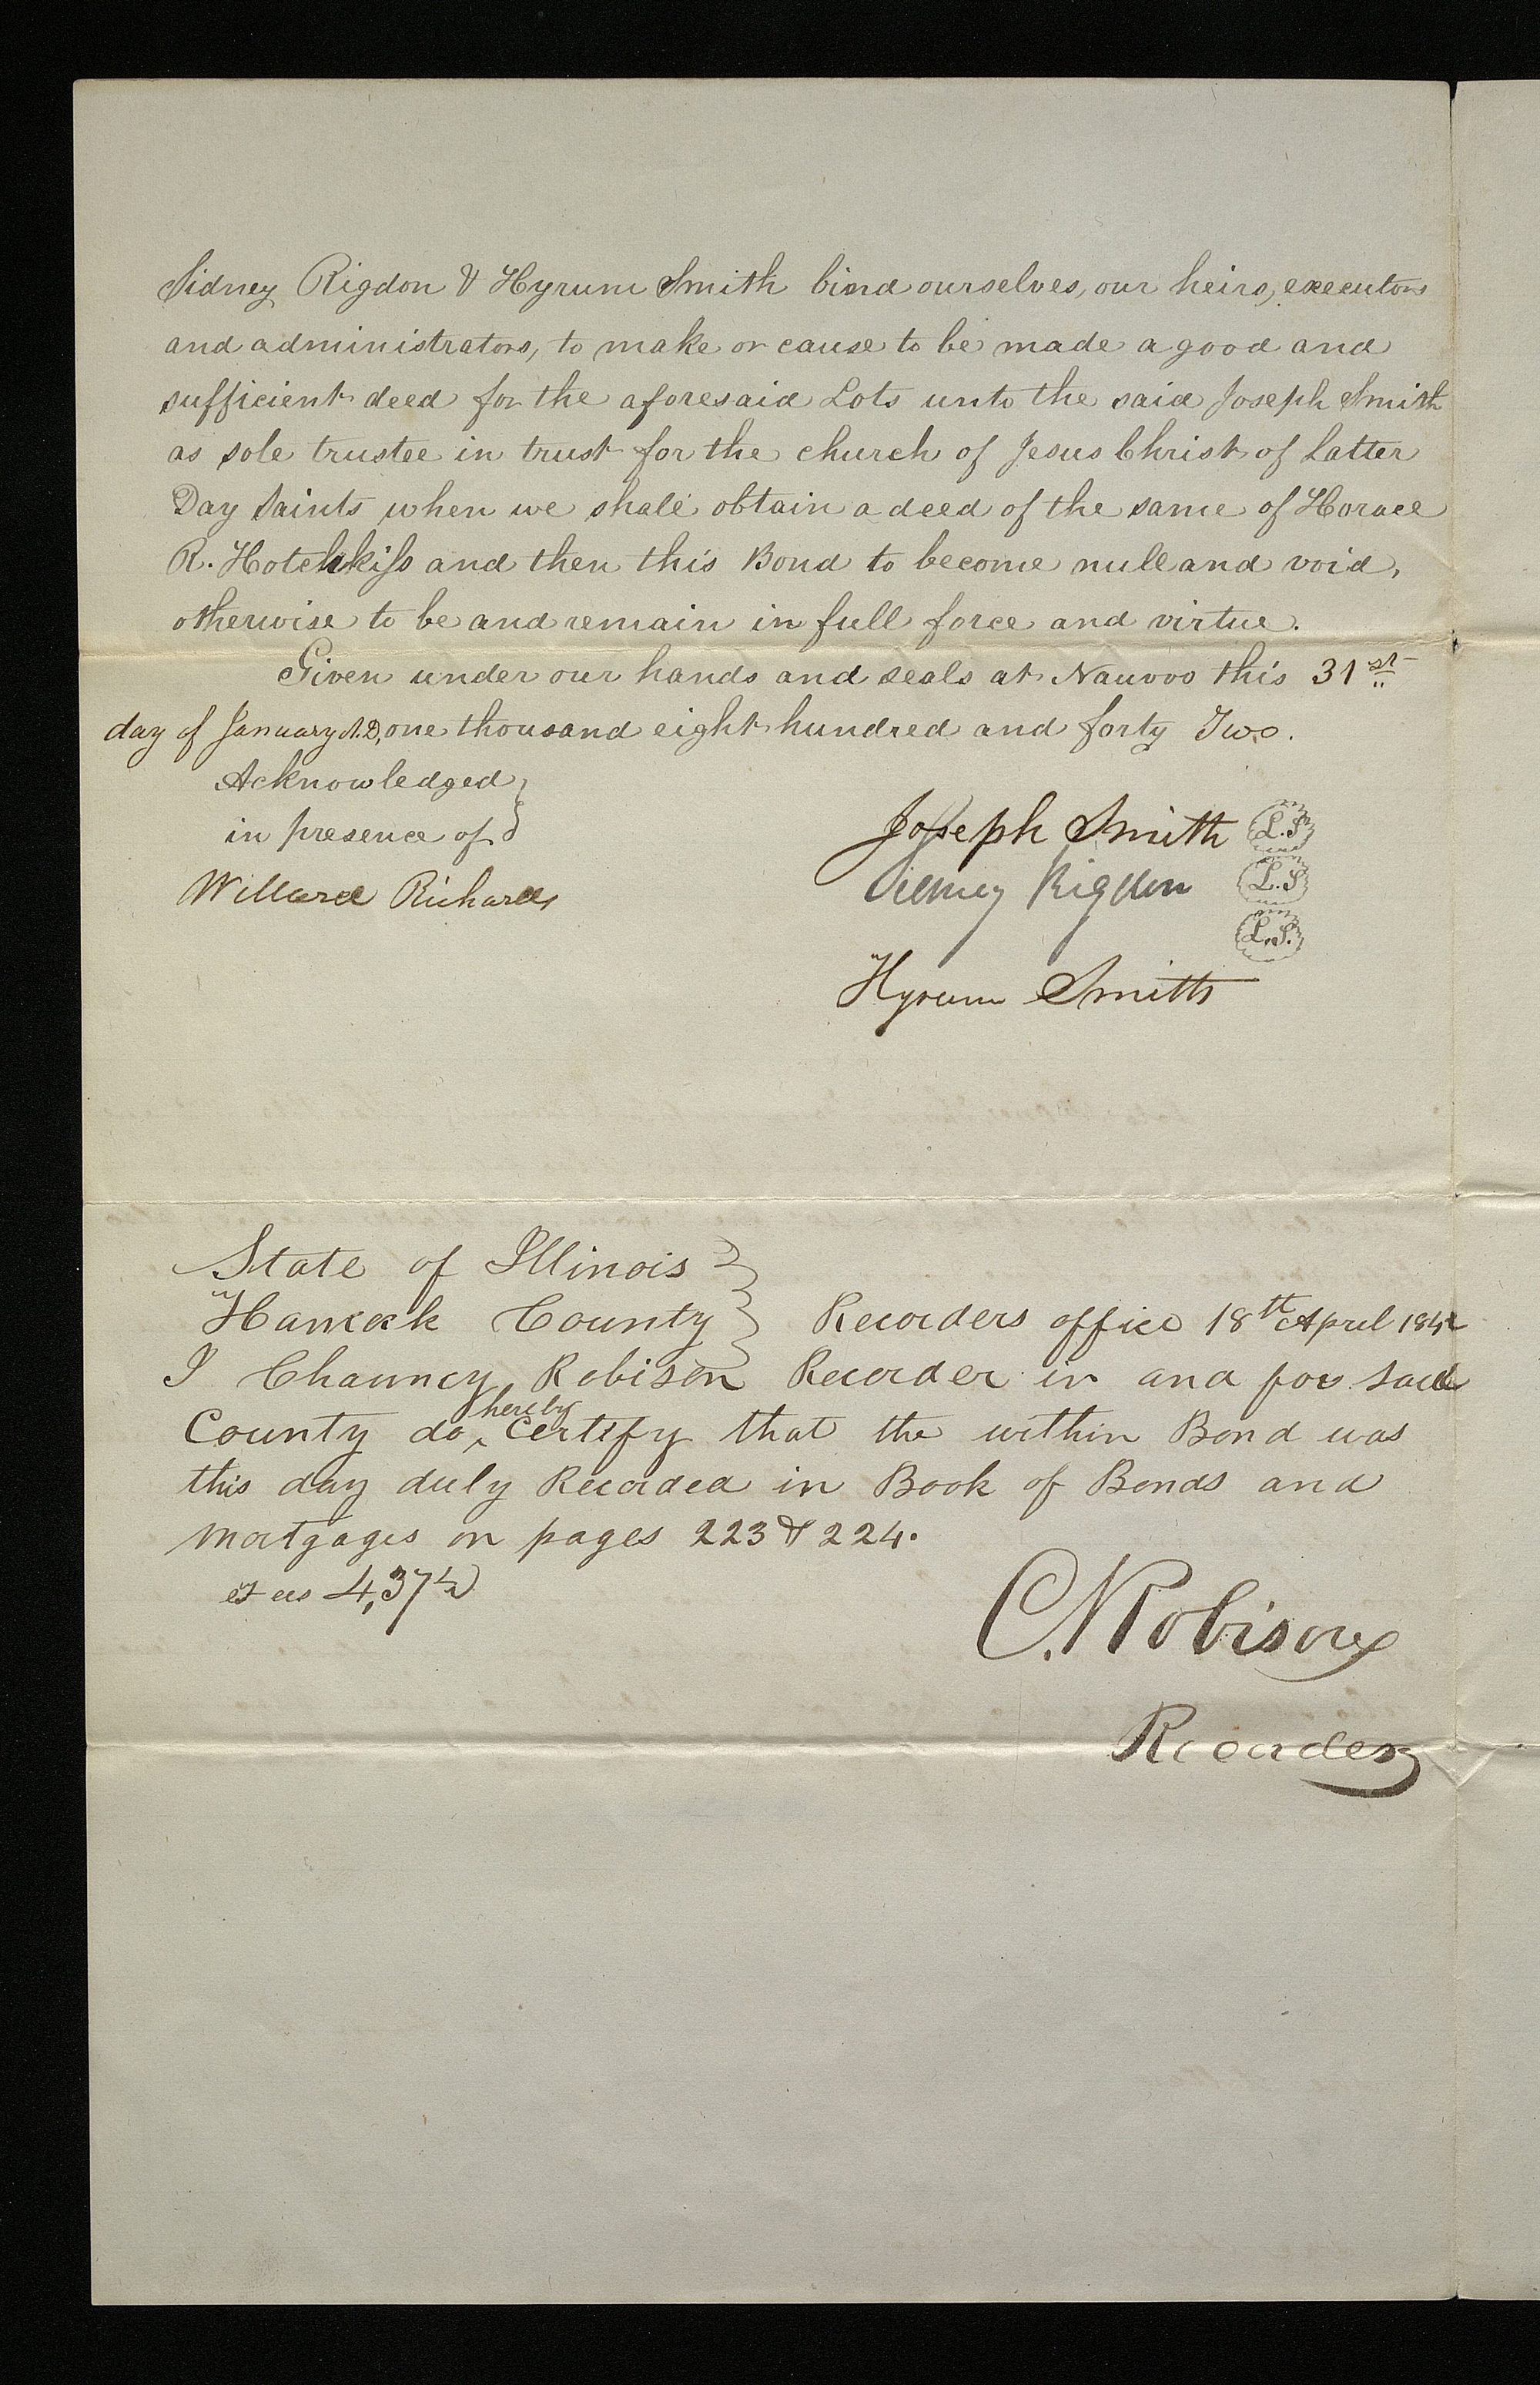 Sidney Rigdon & Hyrum Smith bind ourselves, our heirs, executors
and administrators, to make or cause to be made a good and
sufficient deed for the aforesaid Lots unto the said Joseph Smith
as sole trustee in trust for the church of Jesus Christ of Latter
Day Saints when we shall obtain a deed of the same of Horace
R. Hotchkiss and then this Bond to become null and void,
otherwise to be and remain in full force and virtue.
Given under our hands and seals at Nauvoo this 31st
day of January A.D, one thousand eight hundred and forty Two.
Acknowledged
in presence of
Willard Richards
Joseph Smith L.S
Sidney Rigdon L.S
L.S.
Hyrum Smith
State of Illinois
Hancock County } Recorders office 18th April 1842
I Chauncy Robison Recorder in and for said
County do hereby certify that the within Bond was
this day duly Recorded in Book of Bonds and
Mortgages on pages 223 & 224.
4,37½
C. Robison
Recorder